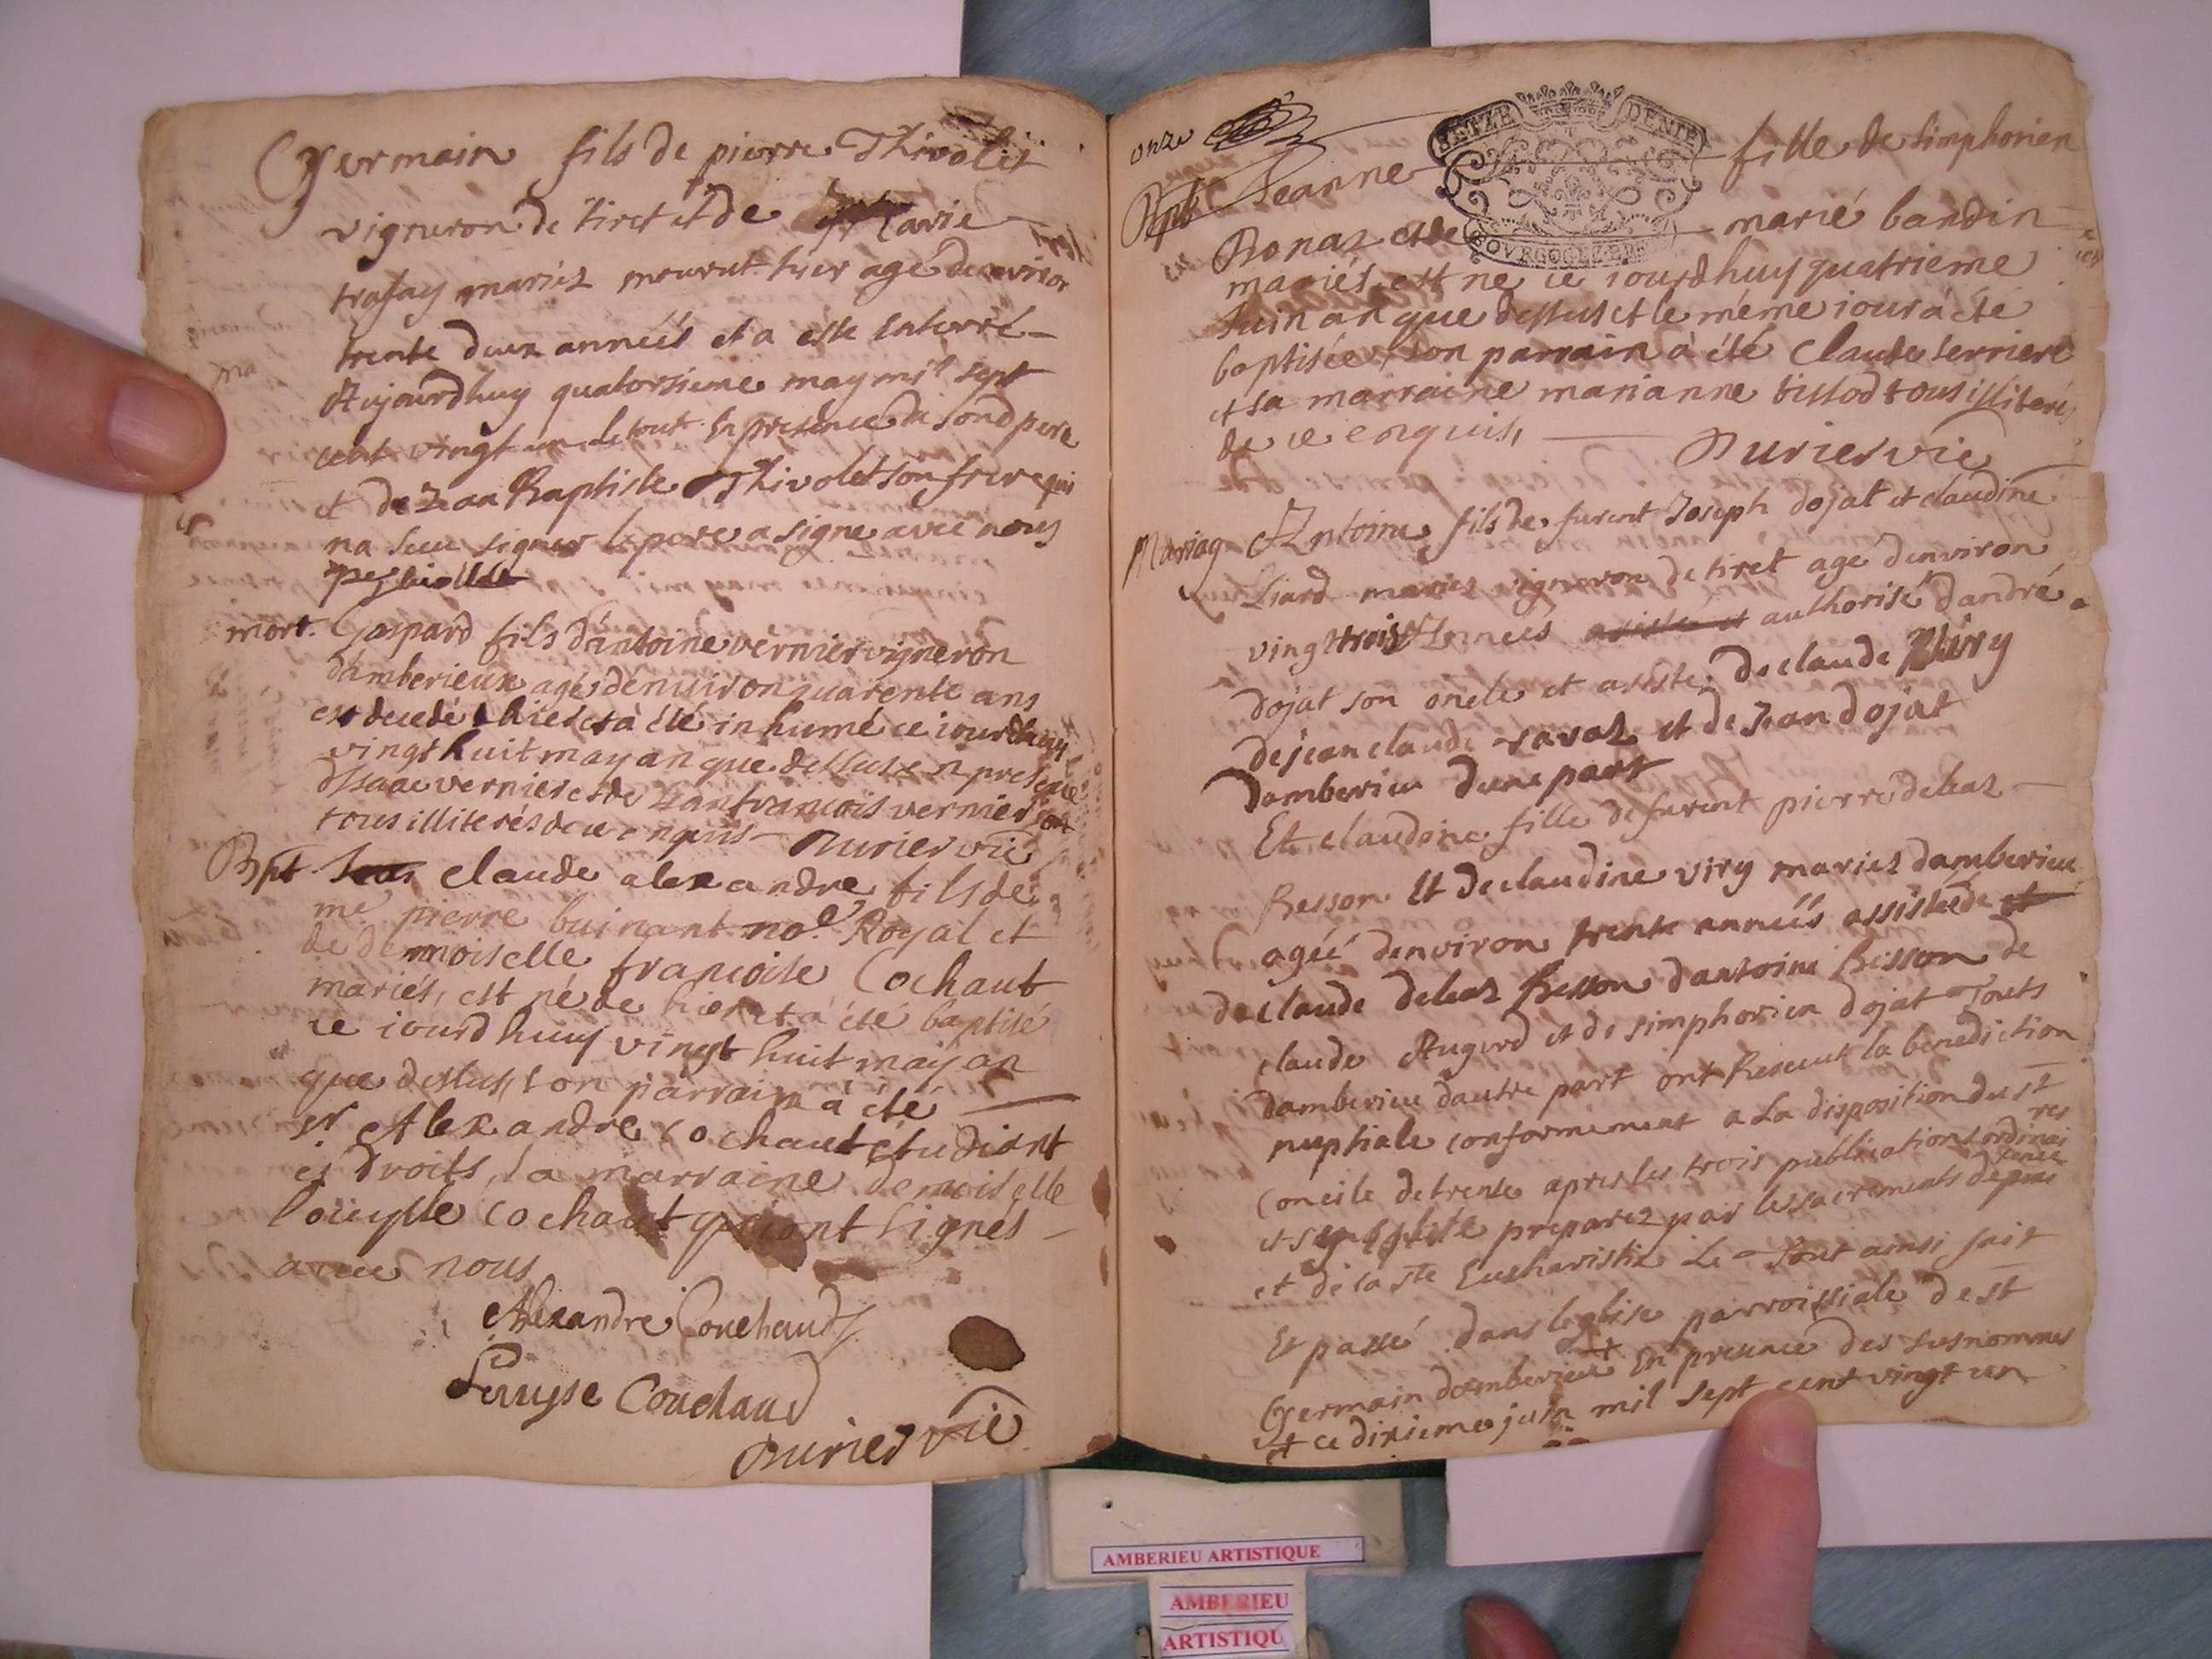 Germain fils de pierre Thivolet
vigneron de tiret et de Marie
trafay mariez mourut hier agé denviron
trente deux années et a este enterré
Aujourdhuy quatorsieme may mil sept
cent vingt un le tout En presence de sond pere
et de Jean Baptiste Thivolet son frere qui
na sceu signer le pere a signe avec nous
mort. Gaspard fils d'antoine vernier vigneron
d'amberieux agé denuiron quarente ans
est decedé hier et à été inhumé ce iourdhuy
vingt huit may an que dessus en presence
d'Isaac vernier et de Jean francois vernier
tous illiterés de ce enquis Nurier vic
Bpt claude alexandre fils de
me pierre buinant no.e Royal et
de demoiselle francoise Cochaut
mariés, est né de hier et à été baptisé
ce iourdhuy vingt huit may an
que dessus, son parrain à été
sr Alexandre cochaut étudiant
és droits, sa marraine demoiselle
loüyse cochaut qui ont signés
avec nous
Alexandre Couchaud
Louyse Couchaud
Nurier vic
onze
SEIZE DENIE
BOVRGOGNE
Bpt Jeanne fille de simphorien
Bonaz et de marié baudin
mariés est ne ce iourdhuy quatrieme
Juin an que dessus et le méme iour à été
baptisée, son parrain à été Claude serriere
et sa marraine marianne tissod tous illiterés
de ce enquis, Nurier vic
Mariag Antoine fils de furent Joseph dojat et claudine
Liard mariez vigneron de tiret agé denviron
vingt trois Années assisté et authorisé dandré
dojat son oncle et assisté de claude Viry
de jean claude ravaz et de Jean dojat
damberieu dune part
Et claudine fille de furent pierre debaz
Besson Et de claudine viry mariez damberieu
agéé denviron trente annéés assistée de et
de claude debaz Besson dantoine Besson de
claude Augerd et de simphorien dojat touts
damberieu dautre part ont Receut la benediction
nuptiale conformement a La disposition du st
Concile de trente apres les trois publications ordinai
res
et preparez par les sacrements de peni
tence
et de la ste Eucharistie Le tout ainsi fait
Et passé dans leglise parroissiale de st
Germain damberieu En presence des susnommes
et ce dixieme juin mil sept cent vingt un
AMBERIEU ARTISTIQUE
AMBERIEU
ARTISTIQU